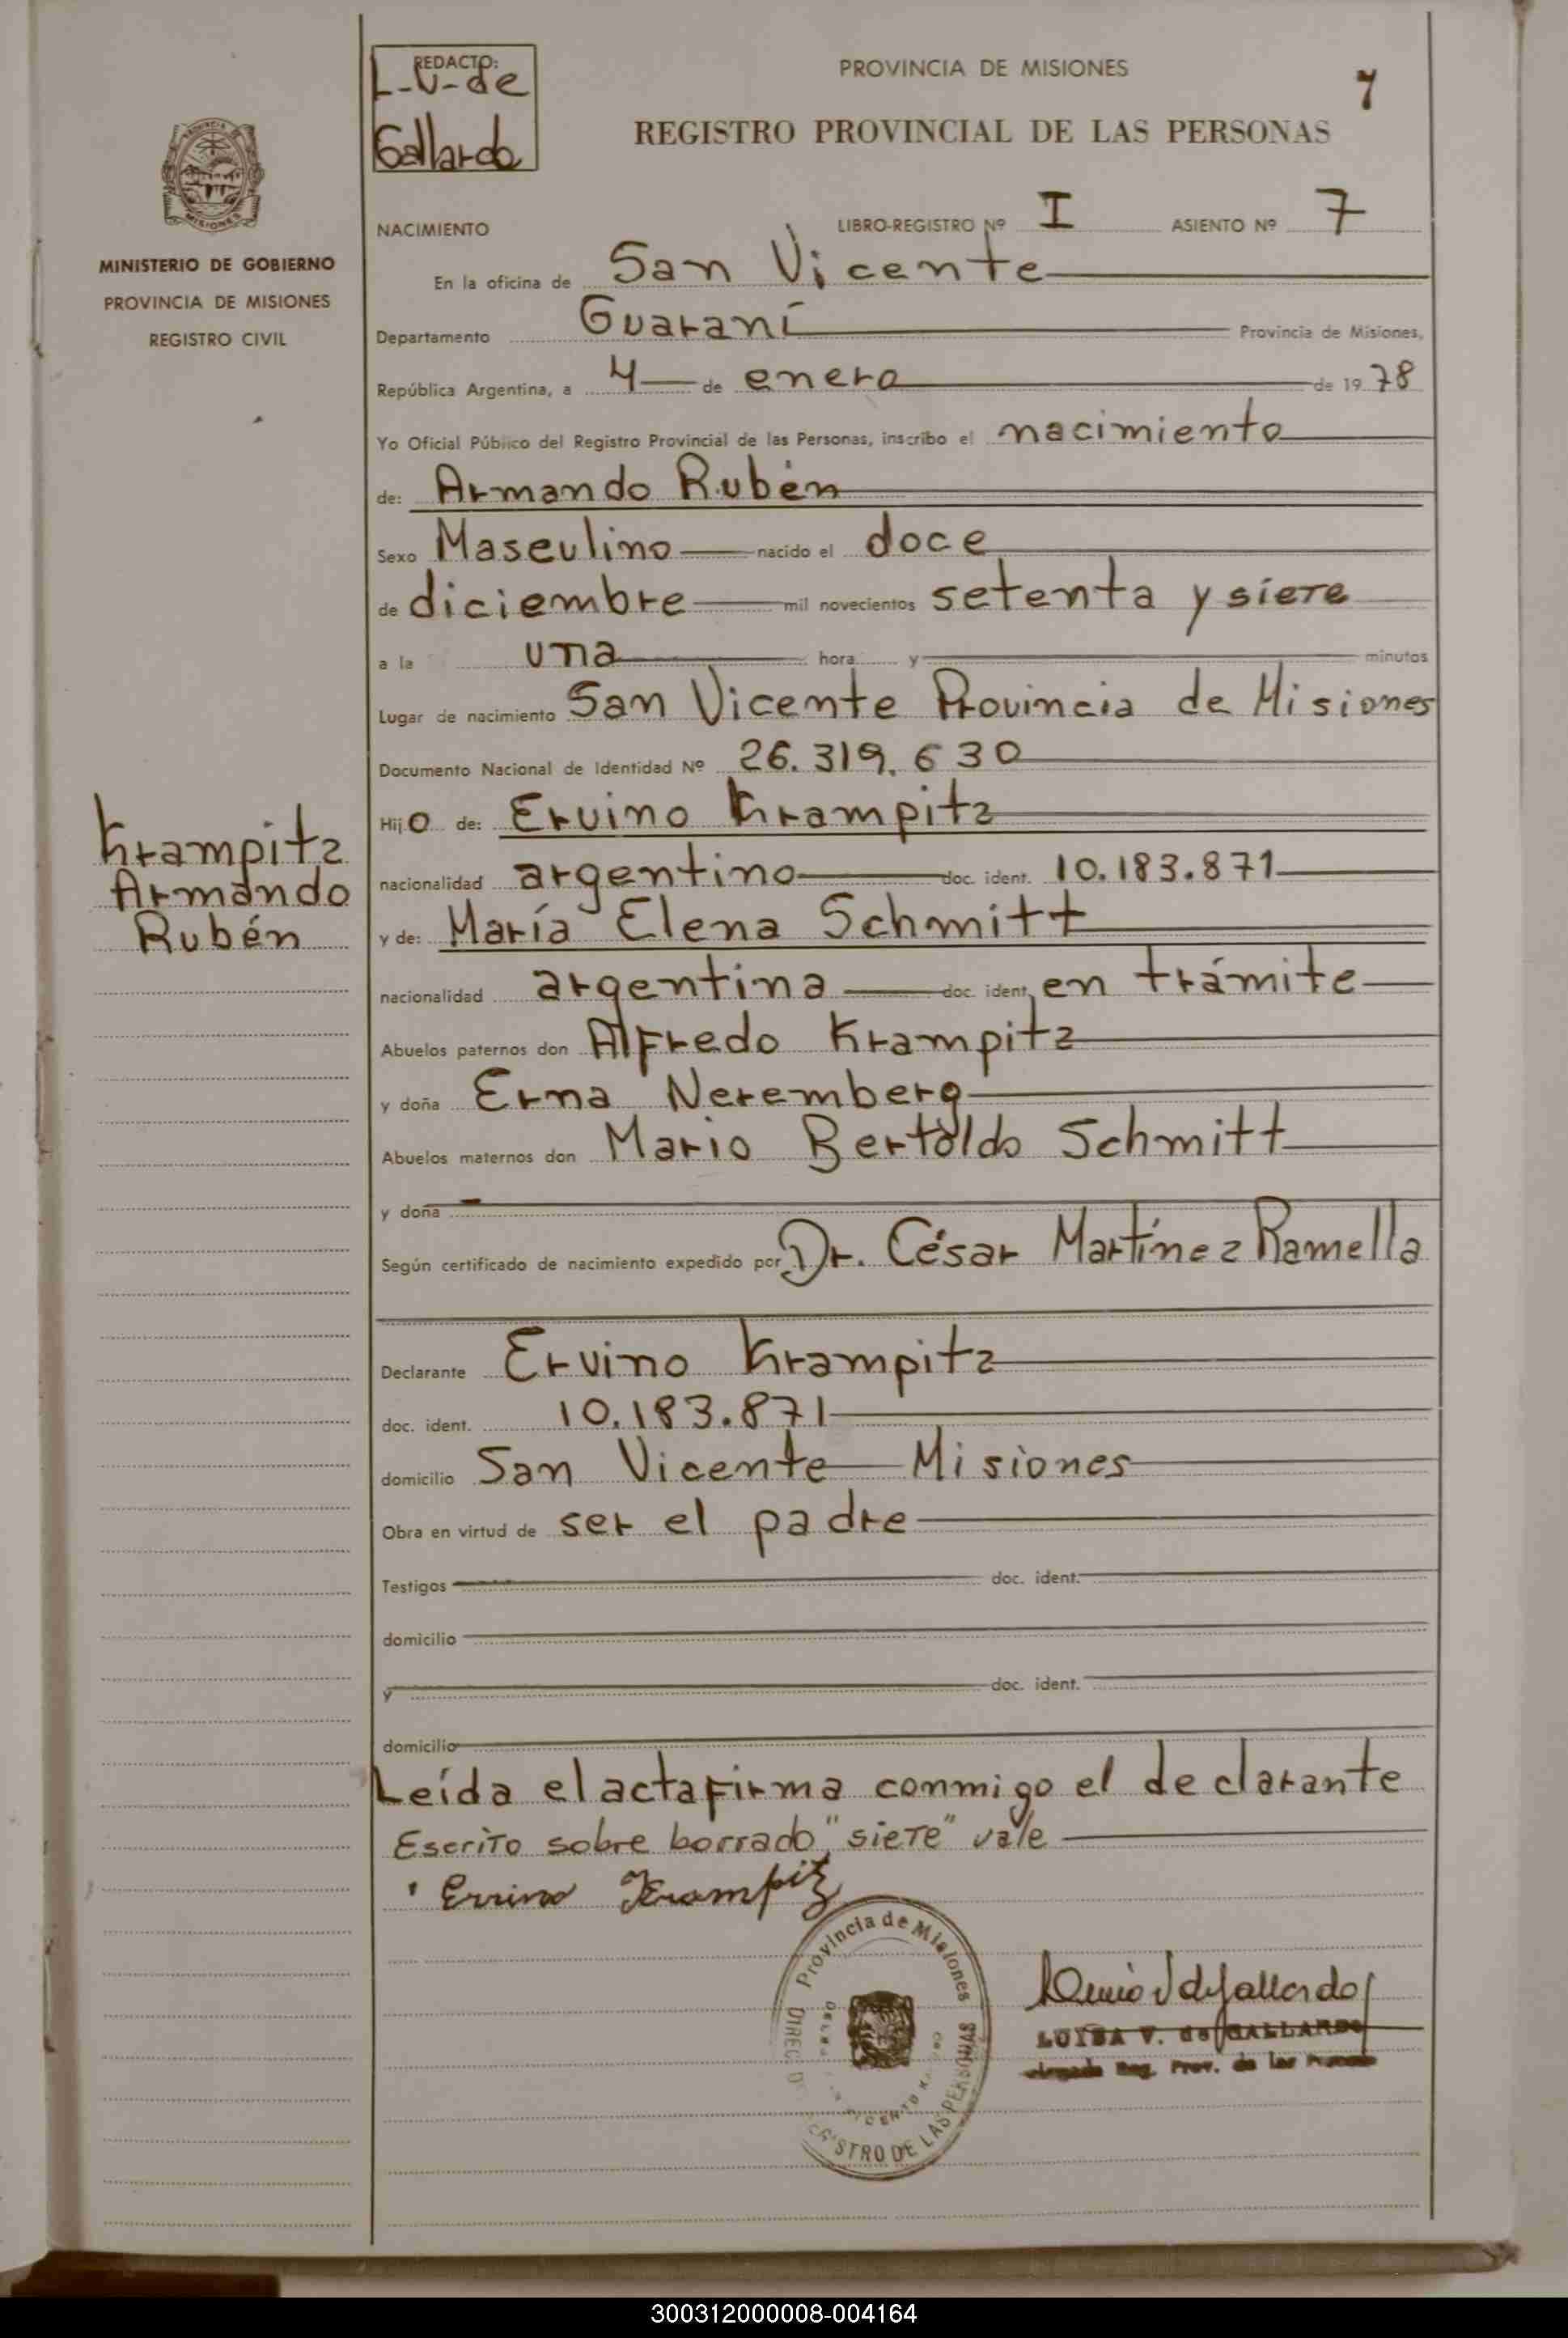 REDACTO:
L-V-de
Gallardo
PROVINCIA DE MISIONES
7
REGISTRO PROVINCIAL DE LAS PERSONAS
MISIONES
MINISTERIO DE GOBIERNO
PROVINCIA DE MISIONES
REGISTRO CIVIL
NACIMIENTO LIBRO-REGISTRO Nº I ASIENTO Nº 7
En la oficina de San Vicente
Departamento Guaraní Provincia de Misiones,
República Argentina, a 4 de enero de 1978
Yo Oficial Público del Registro Provincial de las Personas, inscribo el nacimiento
de: Armando Rubén
Sexo Masculino nacido el doce
de diciembre mil novecientos setenta y siete
a la una hora y minutos
Lugar de nacimiento San Vicente Provincia de Misiones
Documento Nacional de Identidad Nº 26.319.630
Hijo de: Ervino Krampitz
nacionalidad argentino doc. ident. 10.183.871
y de: María Elena Schmitt
nacionalidad argentina doc. ident. en trámite
Abuelos paternos don Alfredo Krampitz
y doña Erna Neremberg
Abuelos maternos don Mario Bertoldo Schmitt
y doña
Según certificado de nacimiento expedido por Dr. César Martínez Ramella
Declarante Ervino Krampitz
doc. ident. 10.183.871
domicilio San Vicente Misiones
Obra en virtud de ser el padre
Testigos doc. ident.
domicilio
y doc. ident.
domicilio
Leída el acta firma conmigo el declarante
Escrito sobre borrado "siete" vale
Ervino Krampitz
Krampitz
Armando
Rubén
Provincia de Misiones
REGISTRO DE LAS PERSONAS
LUISA V. de GALLARDO
Reg. Prov. de las Personas
300312000008-004164